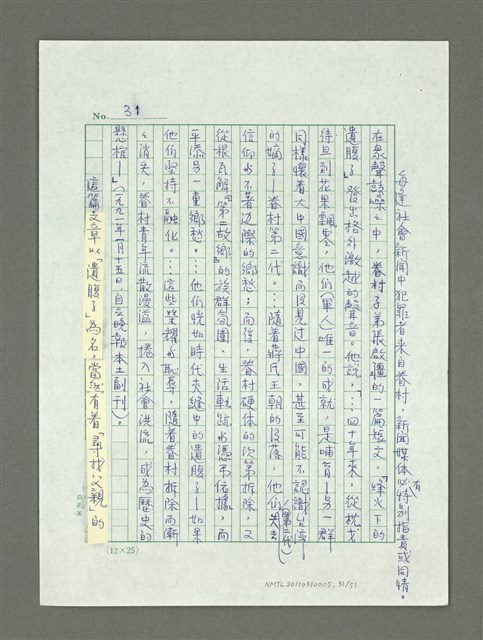 No. 31
每逢社會新聞中犯罪者來自眷村,新聞媒體必有特別指責或同情。
在眾聲鼓噪之中,眷村子弟張啟疆的一篇短文,「烽火下的
遺腹子」發出格外激越的聲音。他說,「…四十年來,從枕戈
待旦到花果飄零,他們(軍人)唯一的成就,是哺育了另一群
同樣懷著大中國意識而沒見過中國,甚至可能不認識台灣
的嫡子—眷村第二代。…隨著蔣氏王朝的沒落,他們(第二代)失去
信仰如不著邊際的鄉愁;而後,眷村硬體的次第拆除,又
從根瓦解「第二故鄉」的族群氛圍、生活軌跡與憑弔依據,而
平添另一重鄉愁。…他們恍如時代夾縫中的遺腹子—如果
他們堅持不融化。…這些榮耀與恥辱,隨著眷村拆除而漸
漸消失,眷村青年流散漫溢,捲入社會洪流,成為歷史的
懸棺—」(一九九一年一月十五日,自立晚報本土副刊)。
這篇文章以「遺腹子」為名,當然有着「尋找父親」的
(12×25)
NMTL20110390005, 31/51